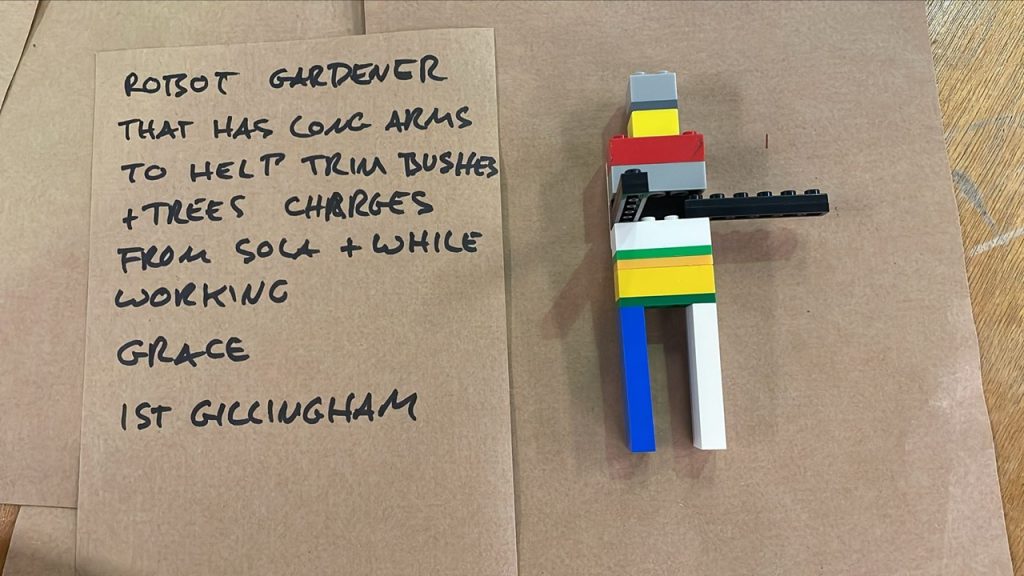 ROBOT GARDENER
THAT HAS LONG ARMS
TO HELP TRIM BUSHES
+ TREES CHARGES
FROM SOLA + WHILE
WORKING
GRACE
1ST GILLINGHAM